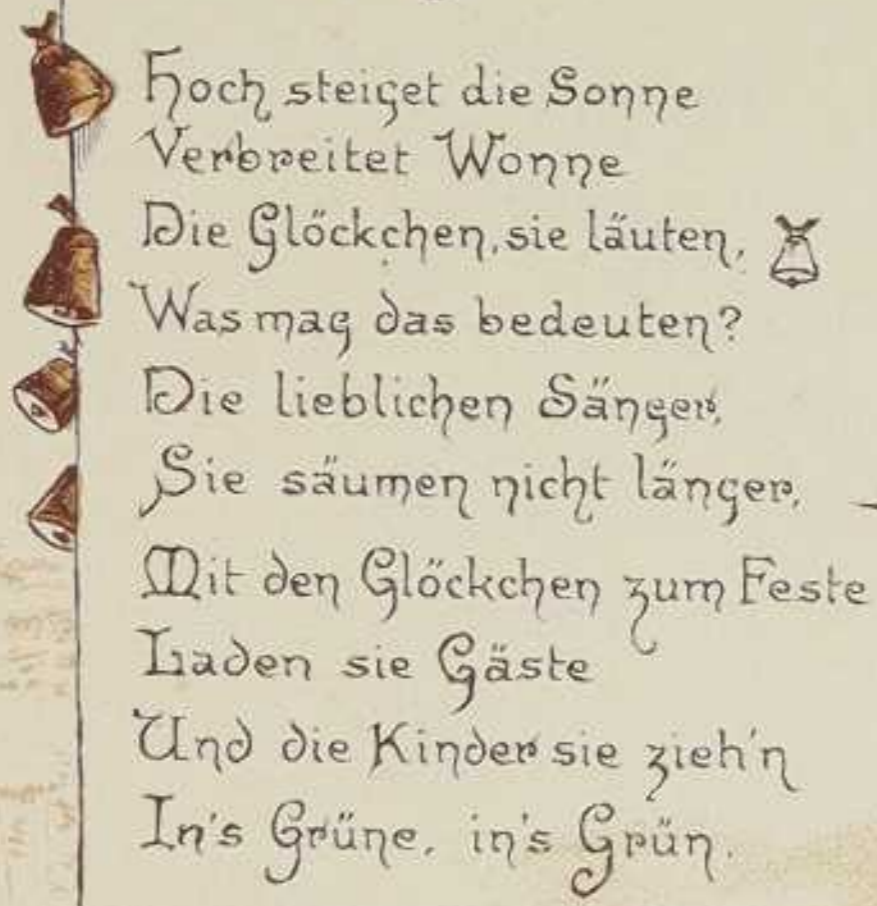 Hoch steiget die Sonne
Verbreitet Wonne
Die Glöckchen, sie läuten,
Was mag das bedeuten?
Die lieblichen Sänger,
Sie säumen nicht länger,
Mit den Glöckchen zum Feste
Laden sie Gäste
Und die Kinder sie zieh'n
In's Grüne, in's Grün.